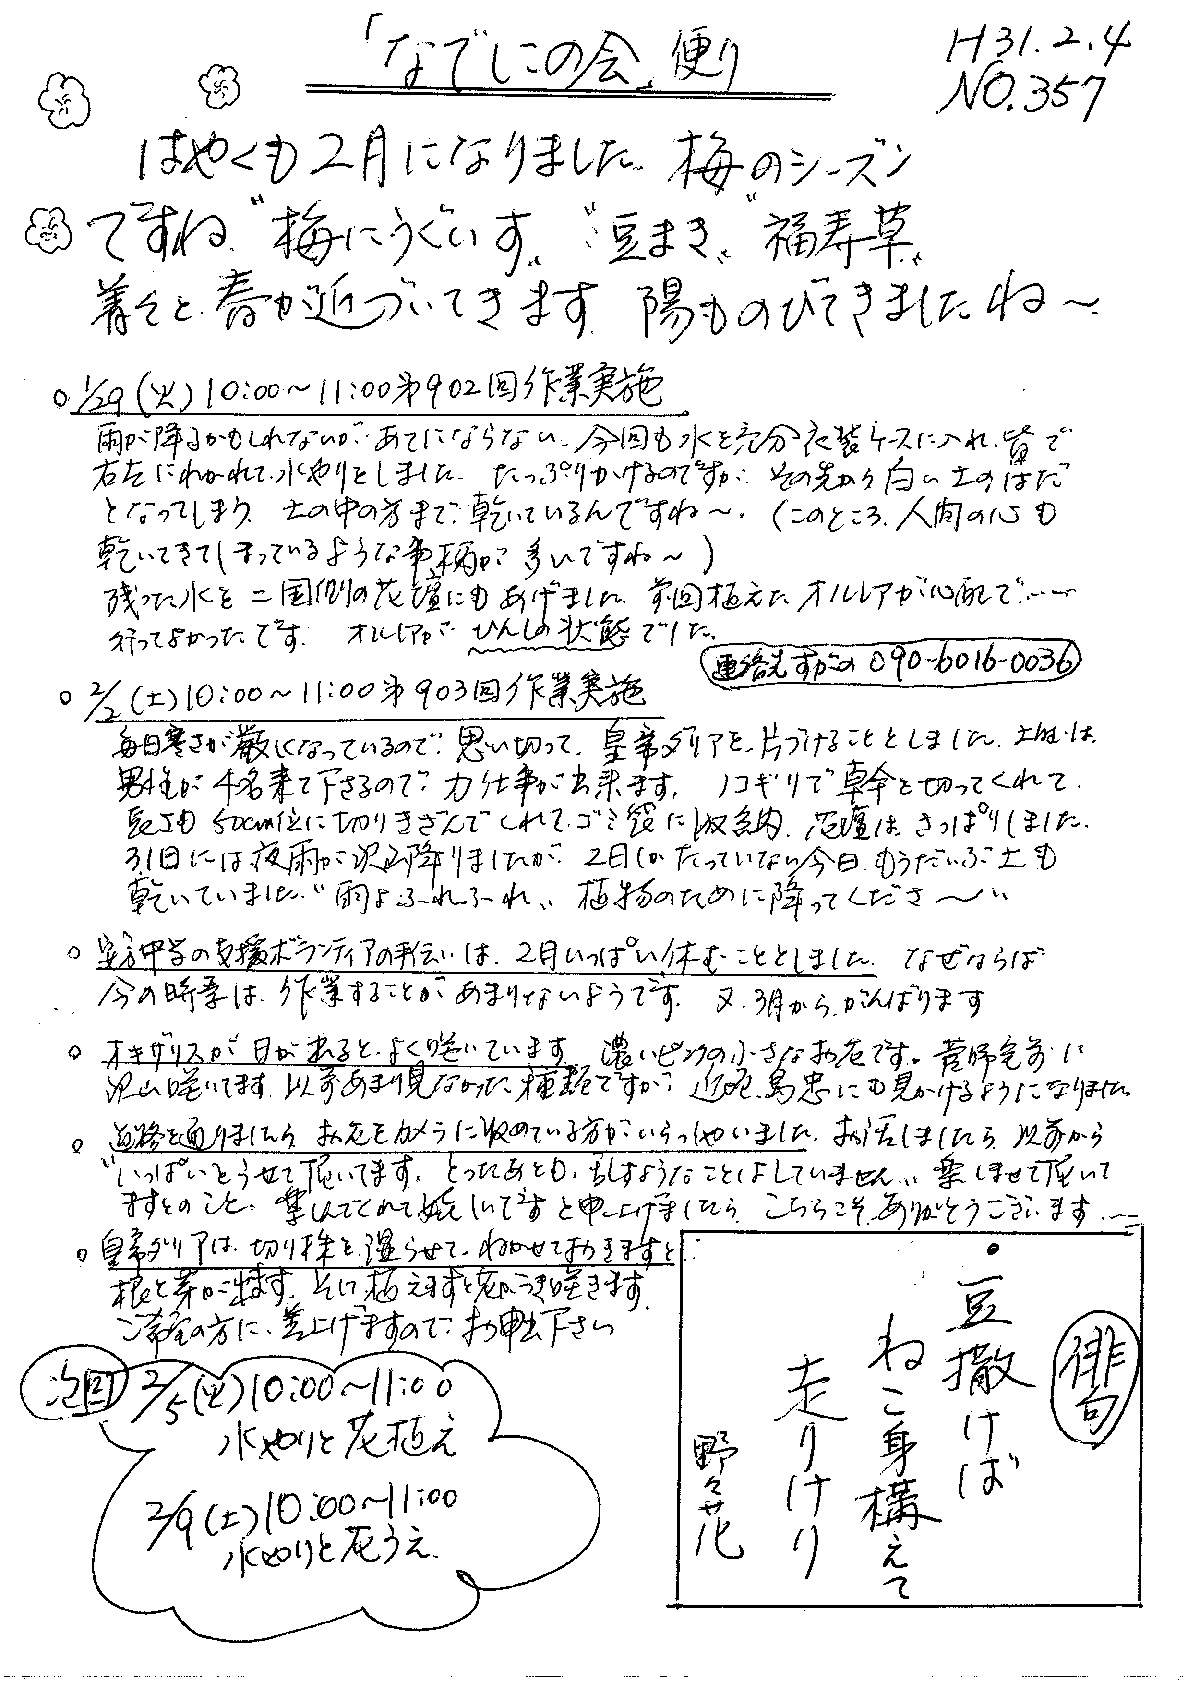 「なでしこの会」便り
H31.2.4
NO.357
はやくも2月になりました。梅のシーズン
ですね。“梅にうぐいす”“豆まき”福寿草”
着々と春が近づいてきます。陽ものびてきましたね〜
○1/29(火)10:00〜11:00第902回作業実施
雨が降るかもしれないが、あてにならない。今回も水を充分衣装ケースに入れ、皆で
右左にわかれて、水やりをしました。たっぷりかけるのですが、その先から白い土のはだ
となってしまう。土の中の方まで乾いているんですね〜。(このところ、人間の心も
乾いてきてしまっているような事柄が多いですね〜)
残った水を二国側の花壇にもあげました。前回植えたオルレアが心配で……
行ってよかったです。オルレアがひんしの状態でした。
連絡先すがの 090-6016-0036
○2/2(土)10:00〜11:00第903回作業実施
毎日寒さが厳しくなっているので、思い切って、皇帝ダリアを片づけることとしました。土曜は、
男性が4名来て下さるので、力仕事が出来ます。ノコギリで草傘を切ってくれて、
長さも50cm位に切りきざんでくれて、ゴミ袋に収納、花壇は、さっぱりしました。
31日には夜雨が沢山降りましたが、2日しかたっていない今日、もうだいぶ土も
乾いていました。“雨よふれふれ、植物のために降ってくださ〜い”
○ 中学の支援ボランティアの手伝いは、2月いっぱい休むこととしました。なぜならば
今の時季は、作業することが、あまりないようです。又、3月から、がんばります
○ オキザリスが日が出ると、よく咲いています。濃いピンクの小さなお花です。管師宅前に
沢山咲いてます。以前あまり見なかった種類ですが、近隣、島忠にも見かけるようになりました。
○ 道路を通りましたら、お花をカメラに収めている方がいらっしゃいました。お話しましたら、以前から
“いっぱいとらせて頂いてます。とったあとも、 ようなことはしていません。”楽しませて頂いて
ますとのこと。楽しんでくれて嬉しいですと申し上げましたら、こちらこそ、ありがとうございます……
○ 皇帝ダリアは、切り株を湿らせて、ねかせておきますと、
根と芽が出ます。それを植えますと花がつき咲きます。
ご希望の方に、差上げますので、お申出下さい
次回
2/5(火)10:00〜11:00
水やりと花植え
2/9(土)10:00〜11:00
水やりと花うえ
俳句
・豆撒けば
ねこ身構えて
走りけり
野々花